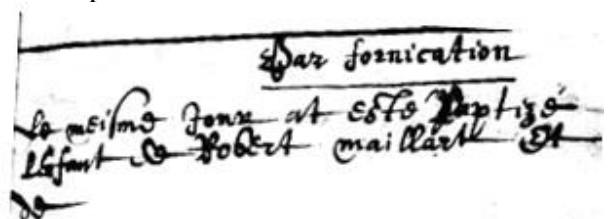 Par fornication
Le meisme Jour at este Baptize
lEfant de Robert maillart Et
de